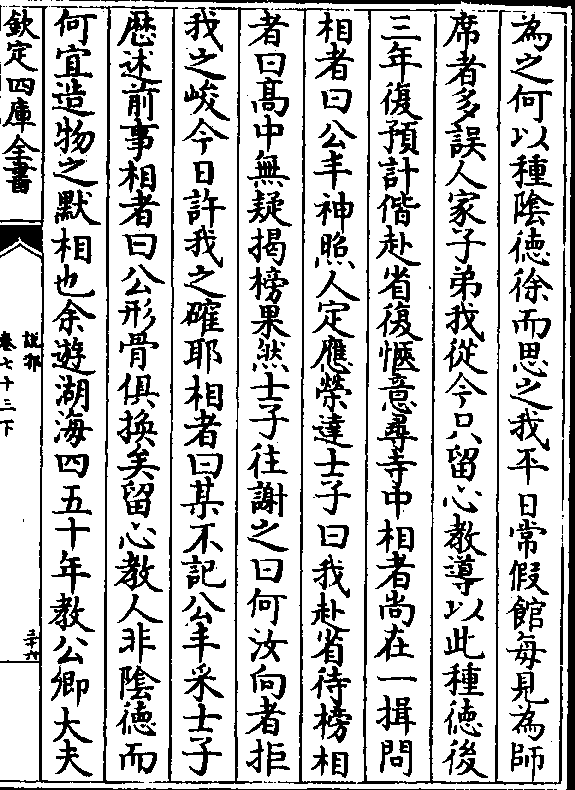 為之何以種陰徳徐而思之我平日常假館每見為師
席者多誤人家子弟我從今只留心教導以此種徳後
三年復預計偕赴省復愜意尋寺中相者尚在一揖問
相者曰公丰神照人定應榮達士子曰我赴省待榜相
者曰髙中無疑揭榜果然士子往謝之曰何汝向者拒
我之峻今日許我之確耶相者曰某不記公丰采士子
歴述前事相者曰公形骨俱換矣留心教人非陰徳而
何宜造物之默相也余遊湖海四五十年教公卿大夫
欽定四庫全書
説郛
卷七十三下
三十六